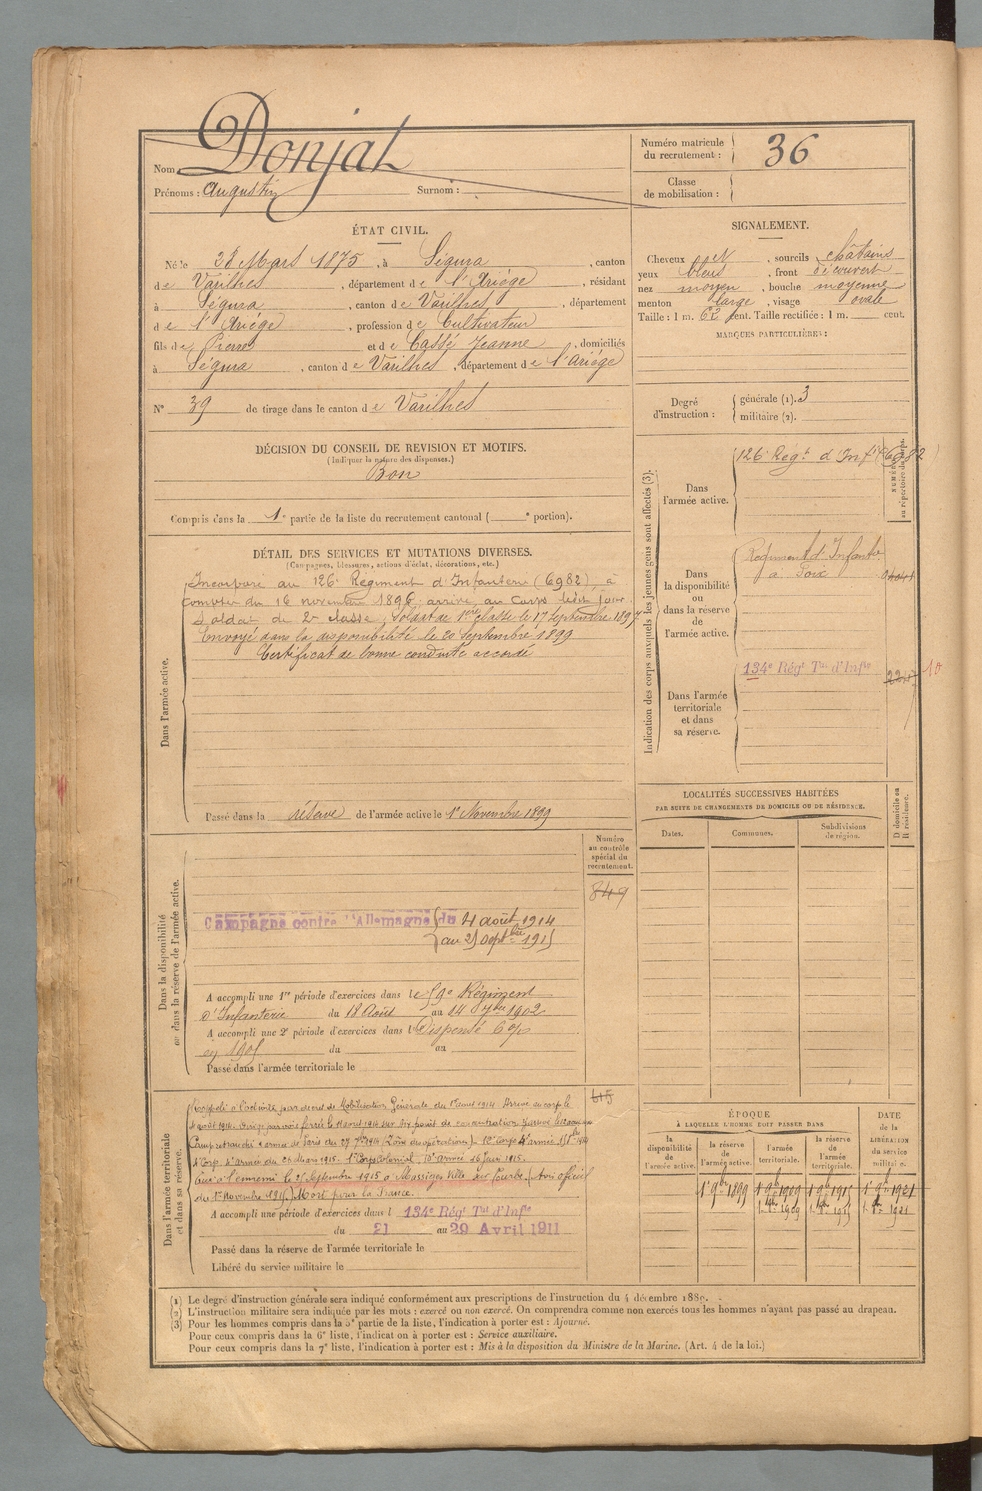 Nom Donjat
Prénoms : Augustin Surnom :
Numéro matricule du recrutement : 36
Classe de mobilisation :
ÉTAT CIVIL.
Né le 28 Mars 1875, à Ségura, canton
de Varilhes, département de l'Ariége, résidant
à Ségura, canton de Varilhes, département
de l'Ariége, profession de Cultivateur
fils de Pierre et de Cassé Jeanne, domiciliés
à Ségura, canton de Varilhes, département de l'Ariége
N° 39 de tirage dans le canton de Varilhes
SIGNALEMENT.
Cheveux et, sourcils chatains
yeux bleus, front découvert
nez moyen, bouche moyenne
menton large, visage ovale
Taille : 1 m. 62 cent. Taille rectifiée : 1 m. cent.
MARQUES PARTICULIÈRES :
Degré d'instruction : générale (1). 3
militaire (2).
DÉCISION DU CONSEIL DE REVISION ET MOTIFS.
(Indiquer la nature des dispenses.)
Bon
Compris dans la 1e partie de la liste du recrutement cantonal ( e portion).
DÉTAIL DES SERVICES ET MUTATIONS DIVERSES.
(Campagnes, blessures, actions d'éclat, décorations, etc.)
Dans l'armée active.
Incorporé au 126e Régiment d'Infanterie (6982), à
compter du 16 novembre 1896, arrivé au Corps ledit jour
Soldat de 2e classe, Soldat de 1ère classe le 17 Septembre 1897
Envoyé dans la disponibilité le 20 Septembre 1899
Certificat de bonne conduite accordé
Passé dans la réserve de l'armée active le 1er Novembre 1899
Indication des corps auxquels les jeunes gens sont affectés (3).
NUMÉRO au répertoire du corps.
Dans l'armée active.
126e Régt d'Infie (6982)
Dans la disponibilité ou dans la réserve de l'armée active.
Régiment d'Infanterie
à Foix
Dans l'armée territoriale et dans sa réserve.
134e Régt Tal d'Infie
10
LOCALITÉS SUCCESSIVES HABITÉES
PAR SUITE DE CHANGEMENTS DE DOMICILE OU DE RÉSIDENCE.
Dates. Communes. Subdivisions de région. D domicile ou R résidence.
Dans la disponibilité ou dans la réserve de l'armée active.
Numéro au contrôle spécial du recrutement.
849
Campagne contre l'Allemagne du 4 août 1914
au 25 septbre 1915
A accompli une 1re période d'exercices dans le 59e Régiment
d'Infanterie du 18 Août au 14 7bre 1902
A accompli une 2e période d'exercices dans l Dispensé
en 1905 du au
Passé dans l'armée territoriale le
Dans l'armée territoriale et dans sa réserve.
615
Rappelé à l'activité par décret de Mobilisation Générale du 1er août 1914. Arrivé au corps le
4 août 1914.
Camp retranché Paris du 27 7bre 1914 (Zone des opérations)
Corps Colonial, 16 Juin 1915.
Tué à l'ennemi le 25 septembre 1915 à Massiges Ville sur Tourbe (Avis officiel
du 1er Novembre 1915) Mort pour la France.
A accompli une période d'exercices dans l 134e Régt Tal d'Infie
du 21 au 29 Avril 1911
Passé dans la réserve de l'armée territoriale le
Libéré du service militaire le
ÉPOQUE
A LAQUELLE L'HOMME DOIT PASSER DANS
la disponibilité de l'armée active. la réserve de l'armée active. l'armée territoriale. la réserve de l'armée territoriale.
DATE de la LIBÉRATION du service militaire.
1er 9bre 1899 1er 9bre 1909 1er 9bre 1915 1er 9bre 1921
1er 8bre 1909 1er 8bre 1915 1er 8bre 1921
(1) Le degré d'instruction générale sera indiqué conformément aux prescriptions de l'instruction du 4 décembre 1889.
(2) L'instruction militaire sera indiquée par les mots : exercé ou non exercé. On comprendra comme non exercés tous les hommes n'ayant pas passé au drapeau.
(3) Pour les hommes compris dans la 5e partie de la liste, l'indication à porter est : Ajourné.
Pour ceux compris dans la 6e liste, l'indication à porter est : Service auxiliaire.
Pour ceux compris dans la 7e liste, l'indication à porter est : Mis à la disposition du Ministre de la Marine. (Art. 4 de la loi.)